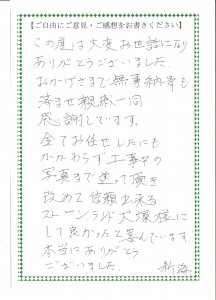 【ご自由にご意見・ご感想をお書きください】
この度は大変お世話になり
ありがとうございました.
おかげさまで無事納骨も
済ませ親族一同
感謝しています。
全てお任せしたにも
かかわらず工事中の
写真まで送って頂き
改めて信頼出来る
ストーンランド大塚様に
して良かったと喜んでいます.
本当にありがとう
ございました.